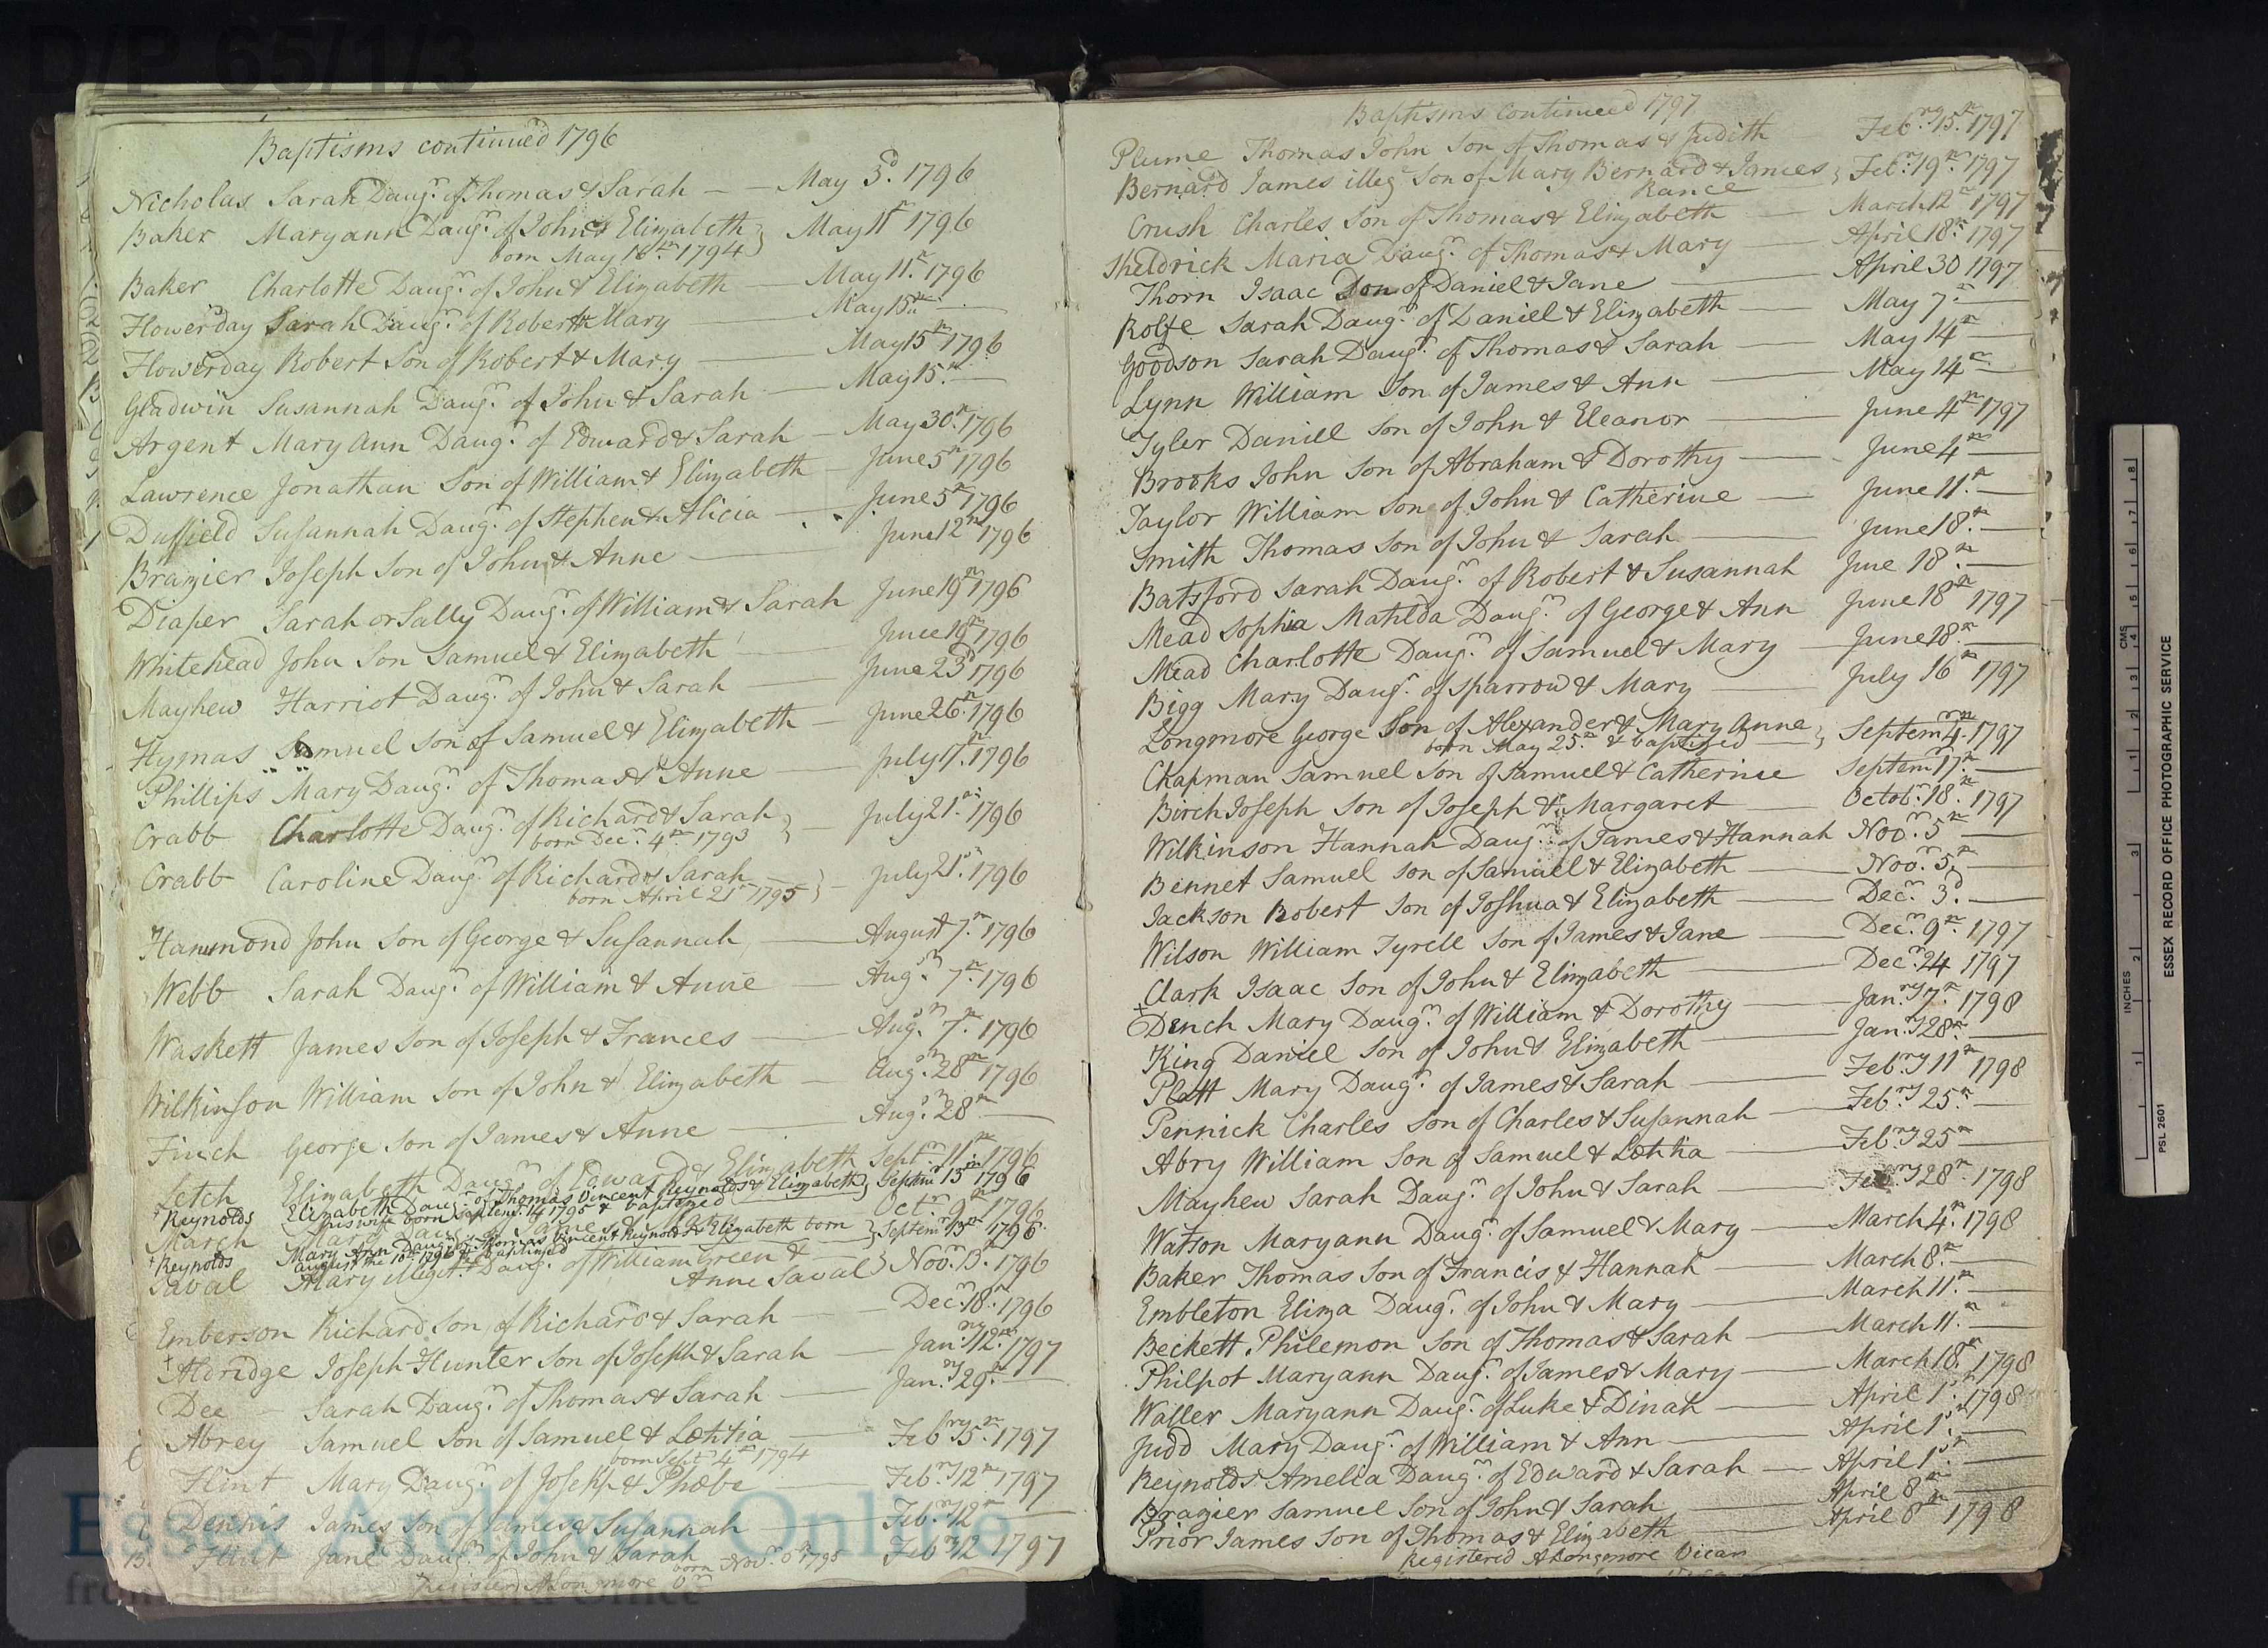 D/P 65/1/3
Baptisms continued 1796
Nicholas Sarah Daugr. of Thomas & Sarah — May 3d. 1796
Baker Maryann Daugr. of John & Elizabeth } May 11th 1796
born May 1794
Baker Charlotte Daugr. of John & Elizabeth — May 11th. 1796
Flowerday Sarah Daugr. of Robert & Mary — May 15th. —
Flowerday Robert Son of Robert & Mary — May 15th 1796
Gladwin Susannah Daugr. of John & Sarah — May 15th. —
Argent Mary Ann Daugr. of Edward & Sarah — May 30th. 1796
Lawrence Jonathan Son of William & Elizabeth — June 5th 1796
Duffield Susannah Daugr. of Stephen & Alicia — June 5th 1796
Brazier Joseph Son of John & Anne — June 12th 1796
Diaper Sarah or Sally Daugr. of William & Sarah June 19th 1796
Whitehead John Son Samuel & Elizabeth — June 19th 1796
Mayhew Harriot Daugr. of John & Sarah — June 23d 1796
Hymas Samuel Son of Samuel & Elizabeth — June 26th. 1796
Phillips Mary Daugr. of Thomas & Anne — July 17th. 1796
Crabb Charlotte Daugr. of Richard & Sarah } — July 21st. 1796
born Decr. 4th 1793
Crabb Caroline Daugr. of Richard & Sarah } — July 21st. 1796
born April 21st 1795
Hammond John Son of George & Susannah — August 7th. 1796
Webb Sarah Daugr. of William & Anne — Augst. 7th. 1796
Waskett James Son of Joseph & Frances — Augst. 7th. 1796
Wilkinson William Son of John & Elizabeth — Augst. 28th 1796
Finch George Son of James & Anne — Augst. 28th —
Letch Elizabeth Daugr. of Edward & Elizabeth Septr. 11th 1796
Reynolds Elizabeth Daugr. of Thomas Vincent Reynolds & Elizabeth } Septmr 13th 1796
his wife born Septemr. 14 1795 & baptized
March Mary Daugr. of James & Octr. 9th 1796
Reynolds Mary Ann Daugr. of Thomas Vincent Reynolds & Elizabeth born } Septemr 13th 1796.
August the 10th 1796 & Baptized
Saval Mary illegit. Daugr. of William Green & } Novr. 13th. 1796
Anne Saval
Emberson Richard Son of Richard & Sarah — Decr. 18th. 1796
Aldridge Joseph Hunter Son of Joseph & Sarah — Janry. 12th. 1797
Dee Sarah Daugr. of Thomas & Sarah — Janry. 29th. —
Abrey Samuel Son of Samuel & Lætitia — Febry 5th. 1797
born Septr 4th 1794
Flint Mary Daugr. of Joseph & Phœbe — Febry. 12th 1797
Dennis James Son of James & Susannah — Febry. 12th —
Flint Jane Daugr. of John & Sarah Febry 12 1797
born Novr. 6th 1795
Registered A Longmore Vr
Baptisms continued 1797
Plume Thomas John Son of Thomas & Judith Febry. 15th. 1797
Bernard James illegt. Son of Mary Bernard & James } Febry. 19th. 1797
Rance
Crush Charles Son of Thomas & Elizabeth — March 12th 1797
Sheldrick Maria Daugr. of Thomas & Mary — April 18th. 1797
Thorn Isaac Son of Daniel & Jane — April 30 1797
Rolfe Sarah Daugr. of Daniel & Elizabeth — May 7th. —
Goodson Sarah Daugr. of Thomas & Sarah — May 14th —
Lynn William Son of James & Ann — May 14th —
Tyler Daniel Son of John & Eleanor — June 4th 1797
Brooks John Son of Abraham & Dorothy — June 4th —
Taylor William Son of John & Catherine — June 11th. —
Smith Thomas Son of John & Sarah — June 18th. —
Batsford Sarah Daugr. of Robert & Susannah June 18th. —
Mead Sophia Matilda Daugr. of George & Ann June 18th 1797
Mead Charlotte Daugr. of Samuel & Mary — June 18th. —
Bigg Mary Daugr. of Sparrow & Mary — July 16th 1797
Longmore George Son of Alexander & Mary Anne } Septemr 4th. 1797
born May 25th. & baptized
Chapman Samuel Son of Samuel & Catherine Septemr 17th. —
Birch Joseph Son of Joseph & Margaret — Octobr. 18th. 1797
Wilkinson Hannah Daugr. of James & Hannah Novr. 5th —
Bennet Samuel Son of Samuel & Elizabeth — Novr. 5th —
Jackson Robert Son of Joshua & Elizabeth — Decr. 3d. —
Wilson William Tyrell Son of James & Jane — Decr. 9th. 1797
Clark Isaac Son of John & Elizabeth — Decr. 24 1797
Dench Mary Daugr. of William & Dorothy — Janry. 7th. 1798
King Daniel Son of John & Elizabeth — Janry. 28th. —
Platt Mary Daugr. of James & Sarah — Febry. 11th 1798
Pennick Charles Son of Charles & Susannah — Febry. 25th. —
Abry William Son of Samuel & Lætitia — Febry 25th —
Mayhew Sarah Daugr. of John & Sarah — Febry 28th. 1798
Watson Maryann Daugr. of Samuel & Mary — March 4th. 1798
Baker Thomas Son of Francis & Hannah — March 8th. —
Embleton Eliza Daugr. of John & Mary — March 11th. —
Beckett Philemon Son of Thomas & Sarah — March 11th. —
Philpot Maryann Daugr. of James & Mary — March 18th. 1798
Waller Maryann Daugr. of Luke & Dinah — April 1st. 1798
Judd Mary Daugr. of William & Ann — April 1st. —
Reynolds Amelia Daugr. of Edward & Sarah — April 1st. —
Brazier Samuel Son of John & Sarah — April 8th —
Prior James Son of Thomas & Elizabeth — April 8th 1798
Registered A Longmore Vicar
Essex Archives Online
from the Essex Record Office
INCHES
CMS
ESSEX RECORD OFFICE PHOTOGRAPHIC SERVICE
PSL 2601